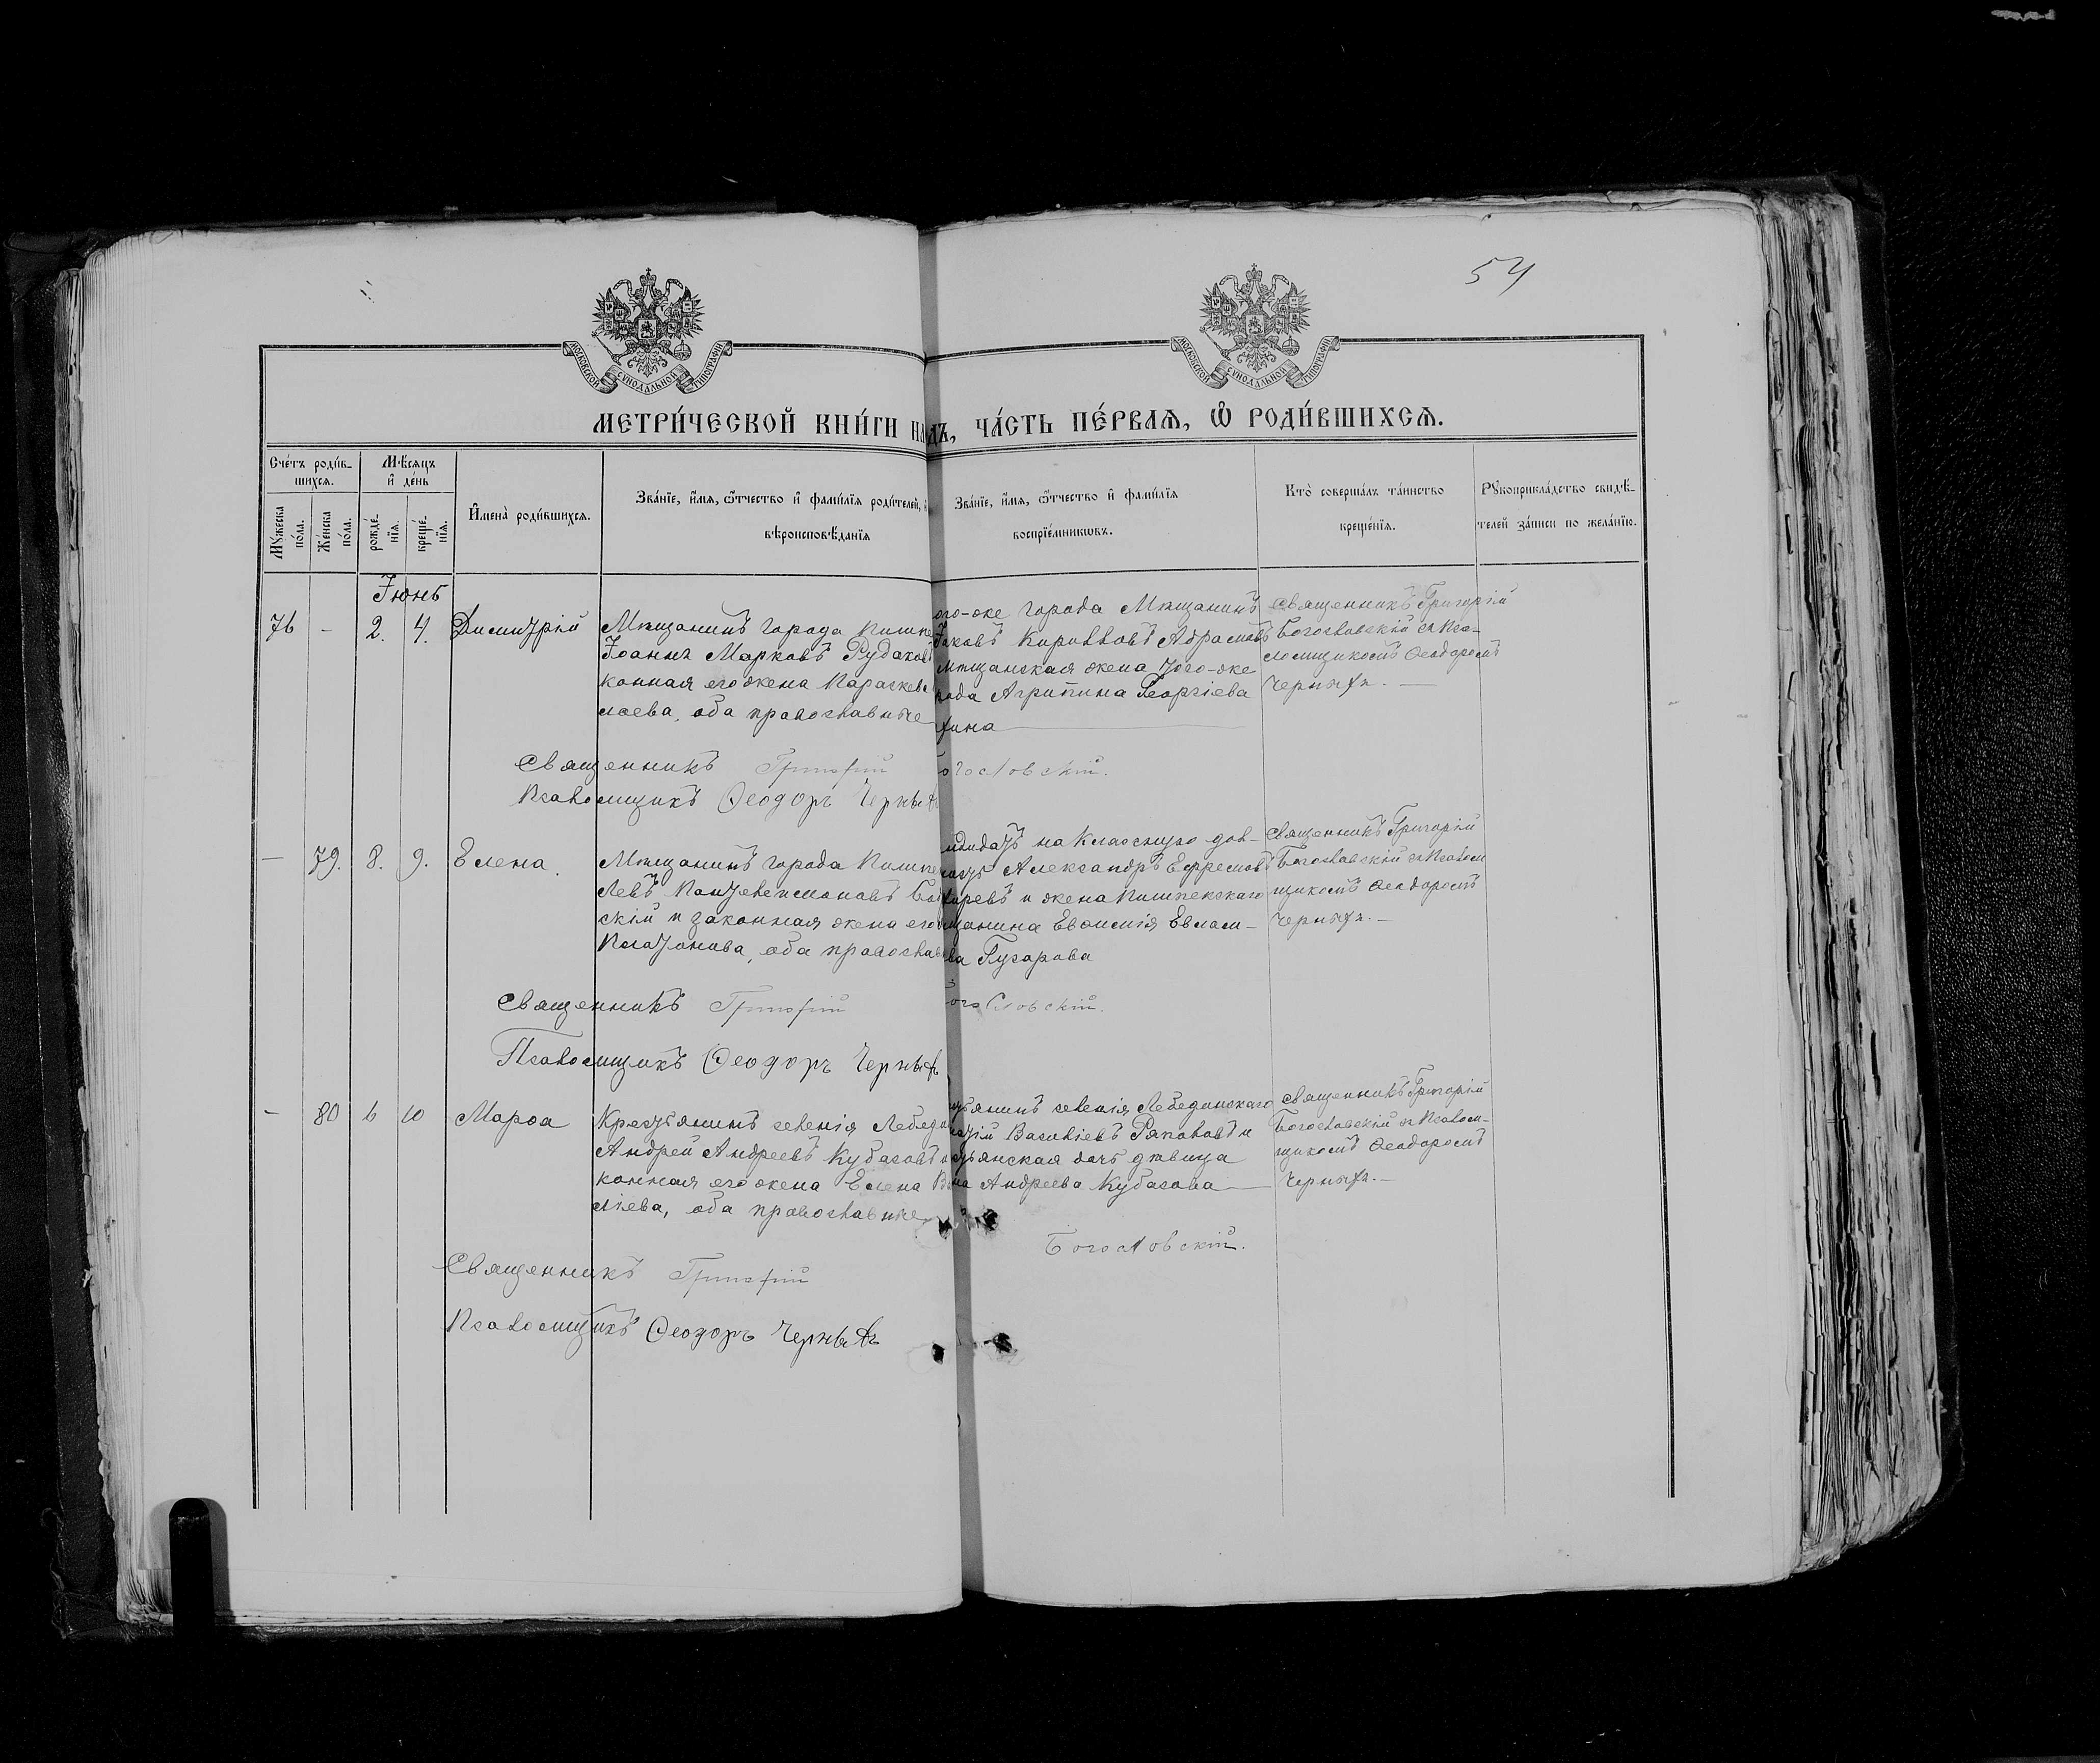 54
МОСКОВСКОЙ СУНОДАЛЬНОЙ ТИПОГРАФІИ
МОСКОВСКОЙ СУНОДАЛЬНОЙ ТИПОГРАФІИ
МЕТРИ́ЧЕСКОЙ КНИ́ГИ НА ДЪ, ЧА́СТЬ ПЕ́РВАЯ, Ѿ РОДИ́ВШИХСЯ.
Сче́тъ роди́в-
шихся.
Мѣ́сяцъ
и҆ де́нь
Му́жеска
по́ла.
Же́нска
по́ла.
рожде́-
нїѧ.
креще́-
нїѧ.
И҆мена̀ роди́вшихся.
Зва́нїе, и҆́мя, ѻ҆́тчество и҆ фами́лїя роди́телей, и҆
вѣроисповѣ́данїя
Зва́нїе, и҆́мя, ѻ҆́тчество и҆ фами́лїя
воспрїе́мникѡвъ.
Кто̀ соверша́лъ та́инство
креще́нїя.
Рꙋкоприкла́дство свидѣ́-
телей за́писи по жела́нїю.
Іюнь
76 - 2. 4. Димитрій
Мѣщанинъ города Пишпе
Іоаннъ Марковъ Рудаковъ
конная его жена Параскева
лаева, оба православные
ого-же города Мѣщанинъ
Іаковъ Кирилловъ Абрамовъ
мѣщанская жена того-же
рода Агрипина Георгіева
хина
Священникъ Григорій
Богословскій съ Пса-
ломщикомъ Ѳеодоромъ
Черныхъ. —
Священникъ Григорій Богословскій.
Псаломщикъ Ѳеодоръ Черныхъ
— 79. 8. 9. Елена.
Мѣщанинъ города Пишпе
Левъ
скій и законная жена его
Платонова, оба православн
ндидатъ на Классную дол-
ность Александръ Ефремовъ
и жена Пишпекскаго
щанина Евѳимія Евлам-
ва Гусарова
Священникъ Григорій
Богословскій съ Псалом
щикомъ Ѳеодоромъ
Черныхъ. —
Священникъ Григорій Богословскій.
Псаломщикъ Ѳеодоръ Черныхъ
— 80 6 10 Марѳа
Крестьянинъ селенія Лебеди
Андрей Андреевъ Кубасовъ и
конная его жена Елена Ва
лiева, оба православные
стьянинъ селенія Лебединскаго
Василіевъ и
стьянская дочь дѣвица
на Андреева Кубасова —
Священникъ Григорій
Богословскій съ Псалом-
щикомъ Ѳеодоромъ
Черныхъ. —
Священникъ Григорій Богословскій.
Псаломщикъ Ѳеодоръ Черныхъ